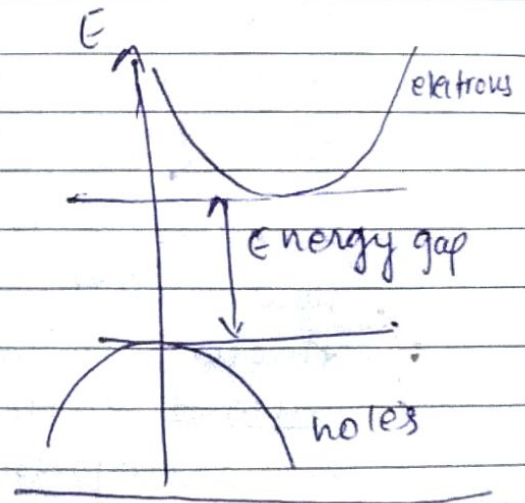 E
elektrons
Energy gap
holes